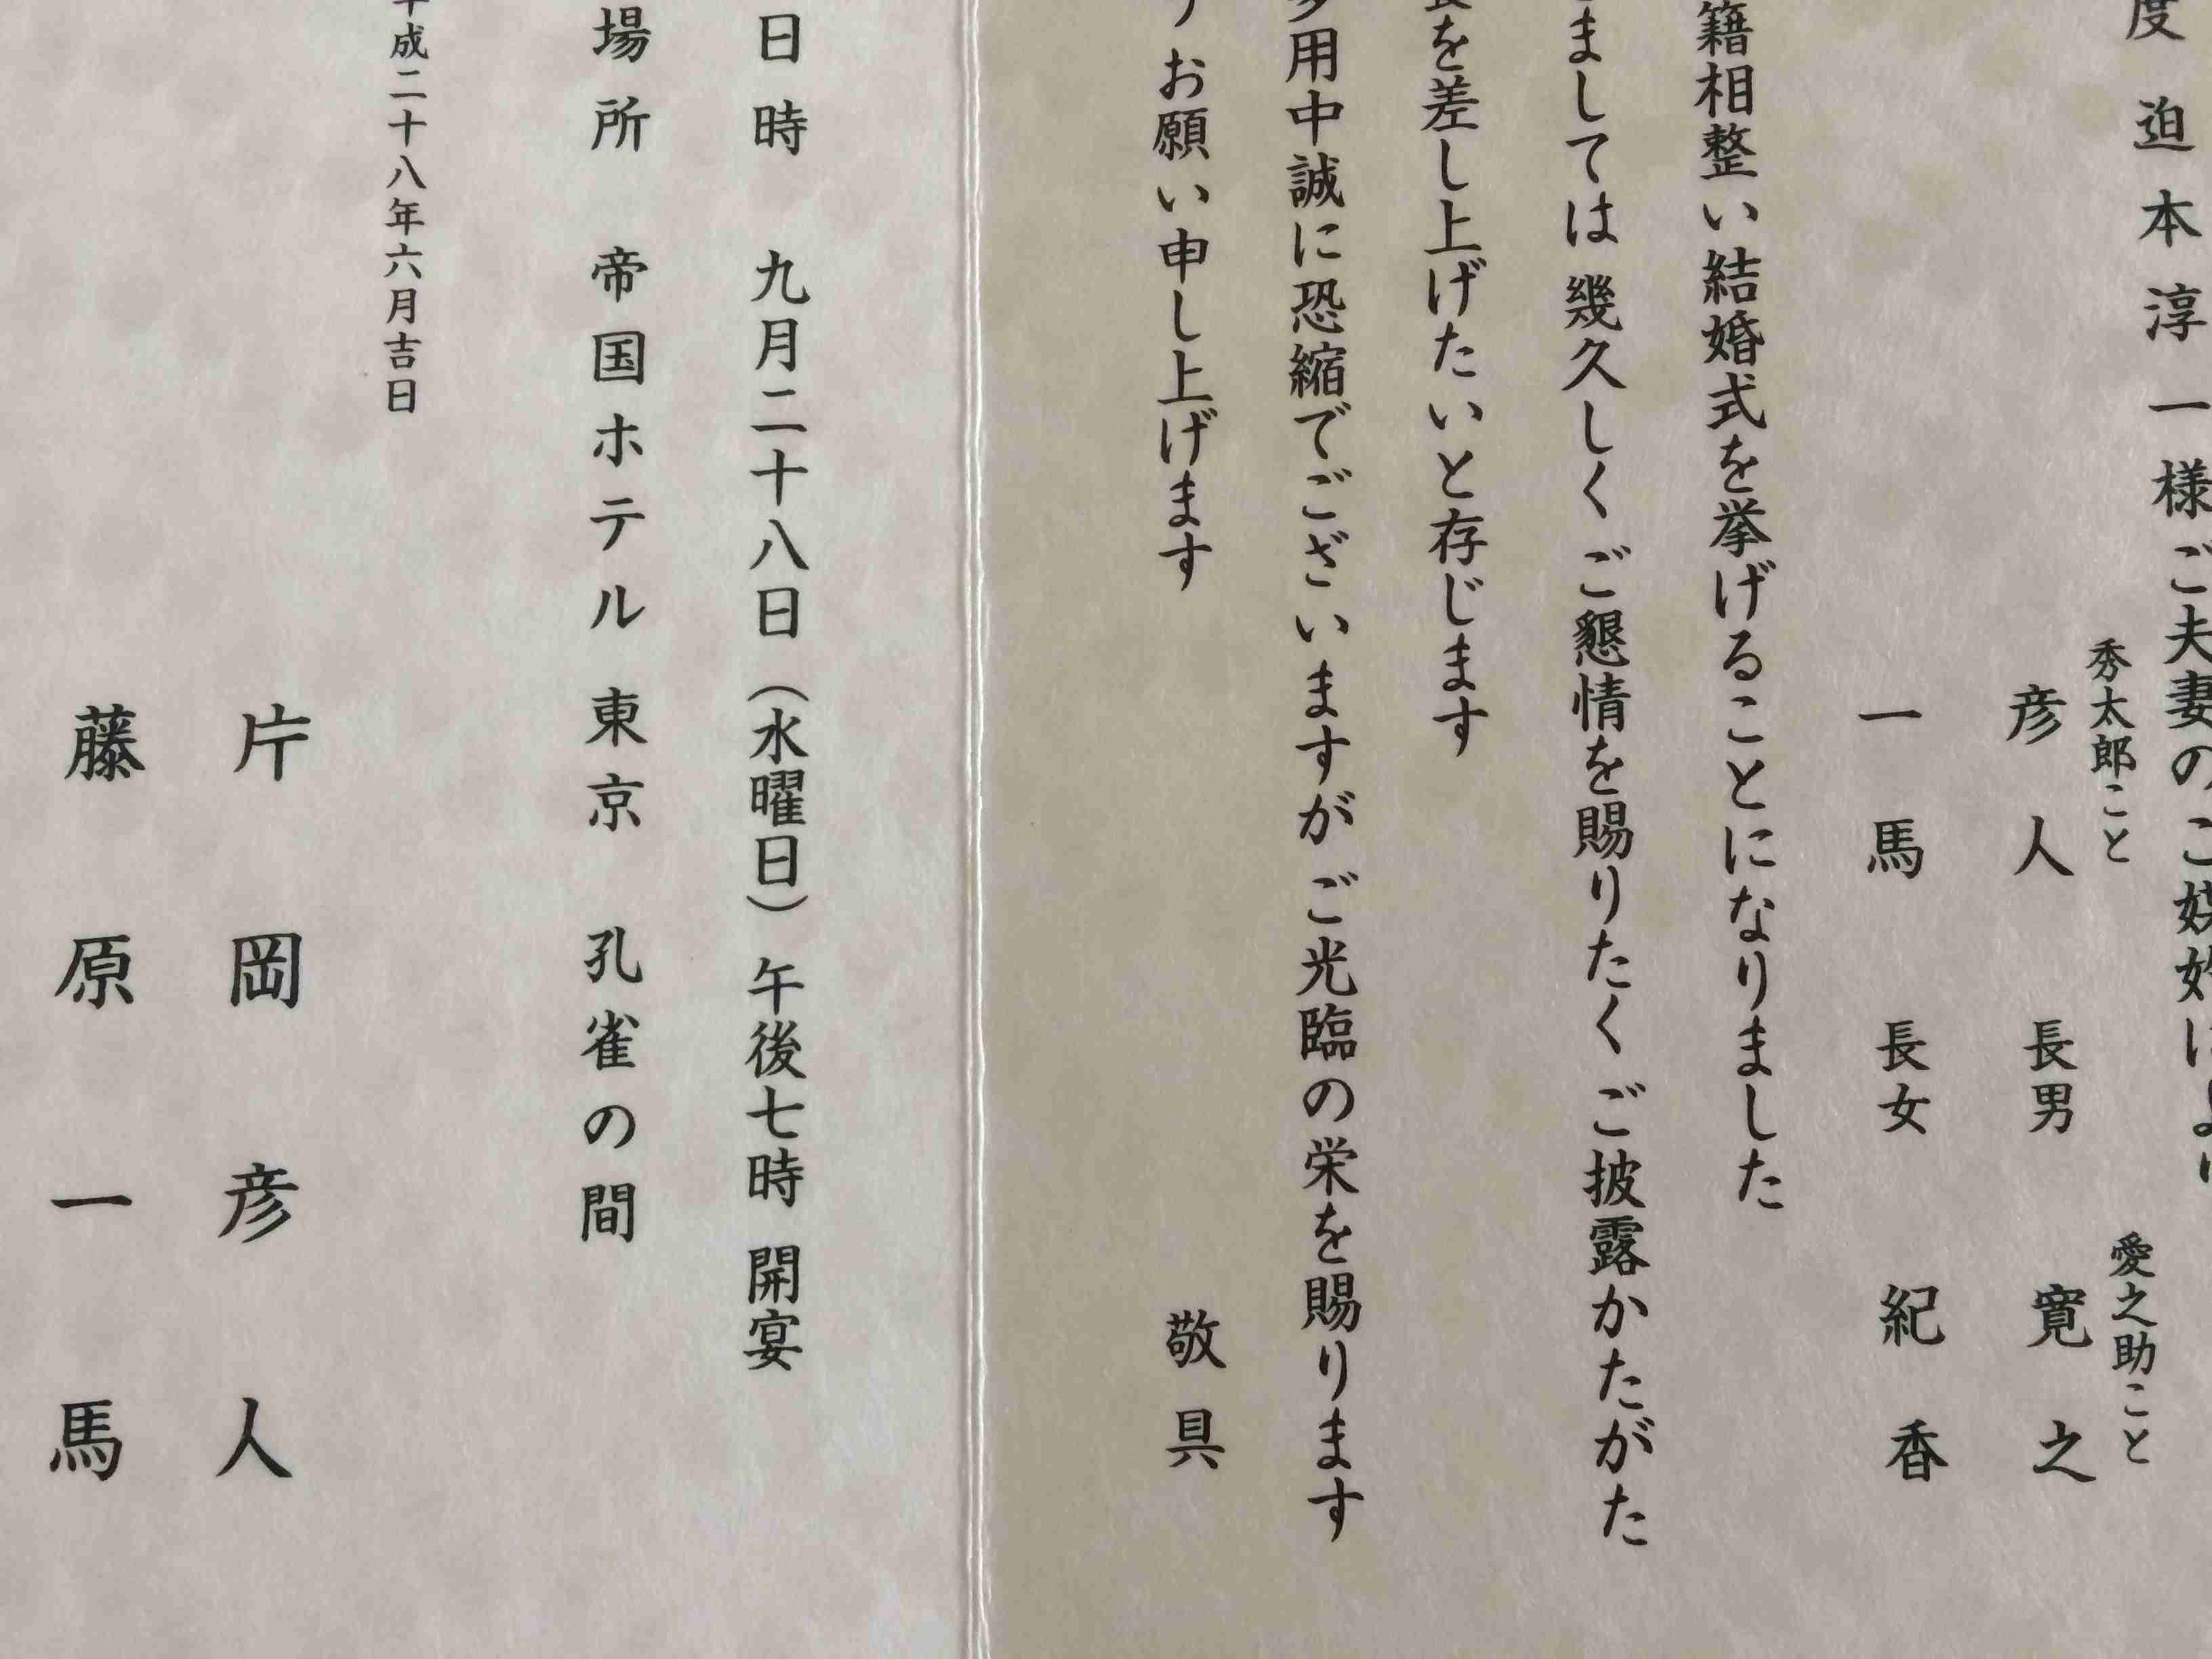 度 迫本淳一様ご夫妻のご媒妁により
秀太郎こと
彦人 長男 寛之
愛之助こと
一馬 長女 紀香
籍相整い結婚式を挙げることになりました
ましては 幾久しくご懇情を賜りたく ご披露かたがた
を差し上げたいと存じます
多用中誠に恐縮でございますが ご光臨の栄を賜ります
お願い申し上げます
敬具
日時 九月二十八日(水曜日) 午後七時 開宴
場所 帝国ホテル東京 孔雀の間
平成二十八年六月吉日
片岡彦人
藤原一馬